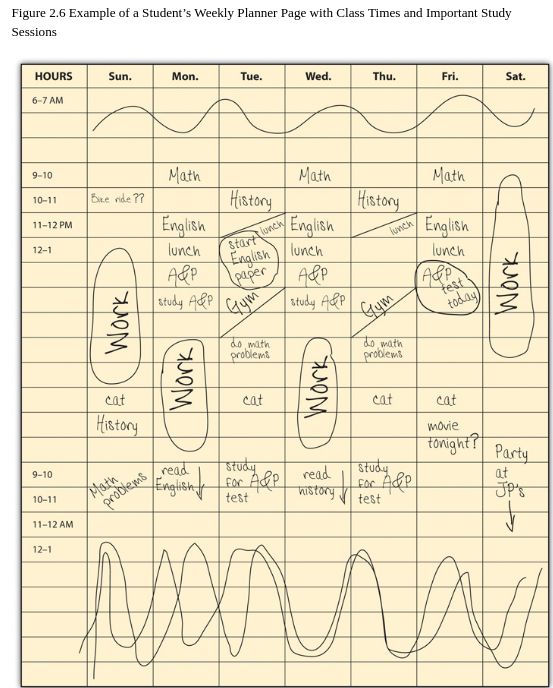 Figure 2.6 Example of a Student’s Weekly Planner Page with Class Times and Important Study
Sessions
HOURS Sun. Mon. Tue. Wed. Thu. Fri. Sat.
6–7 AM
9–10 Math Math Math
10–11 Bike ride?? History History
11–12 PM English lunch English lunch English
12–1 lunch start English paper lunch lunch
A&P A&P A&P test today
study A&P Gym study A&P Gym
Work Work
do math problems do math problems
Work Work
cat cat cat cat
History movie tonight?
Party at JP's
9–10 Math problems read English study for A&P test read history study for A&P test
10–11
11–12 AM
12–1